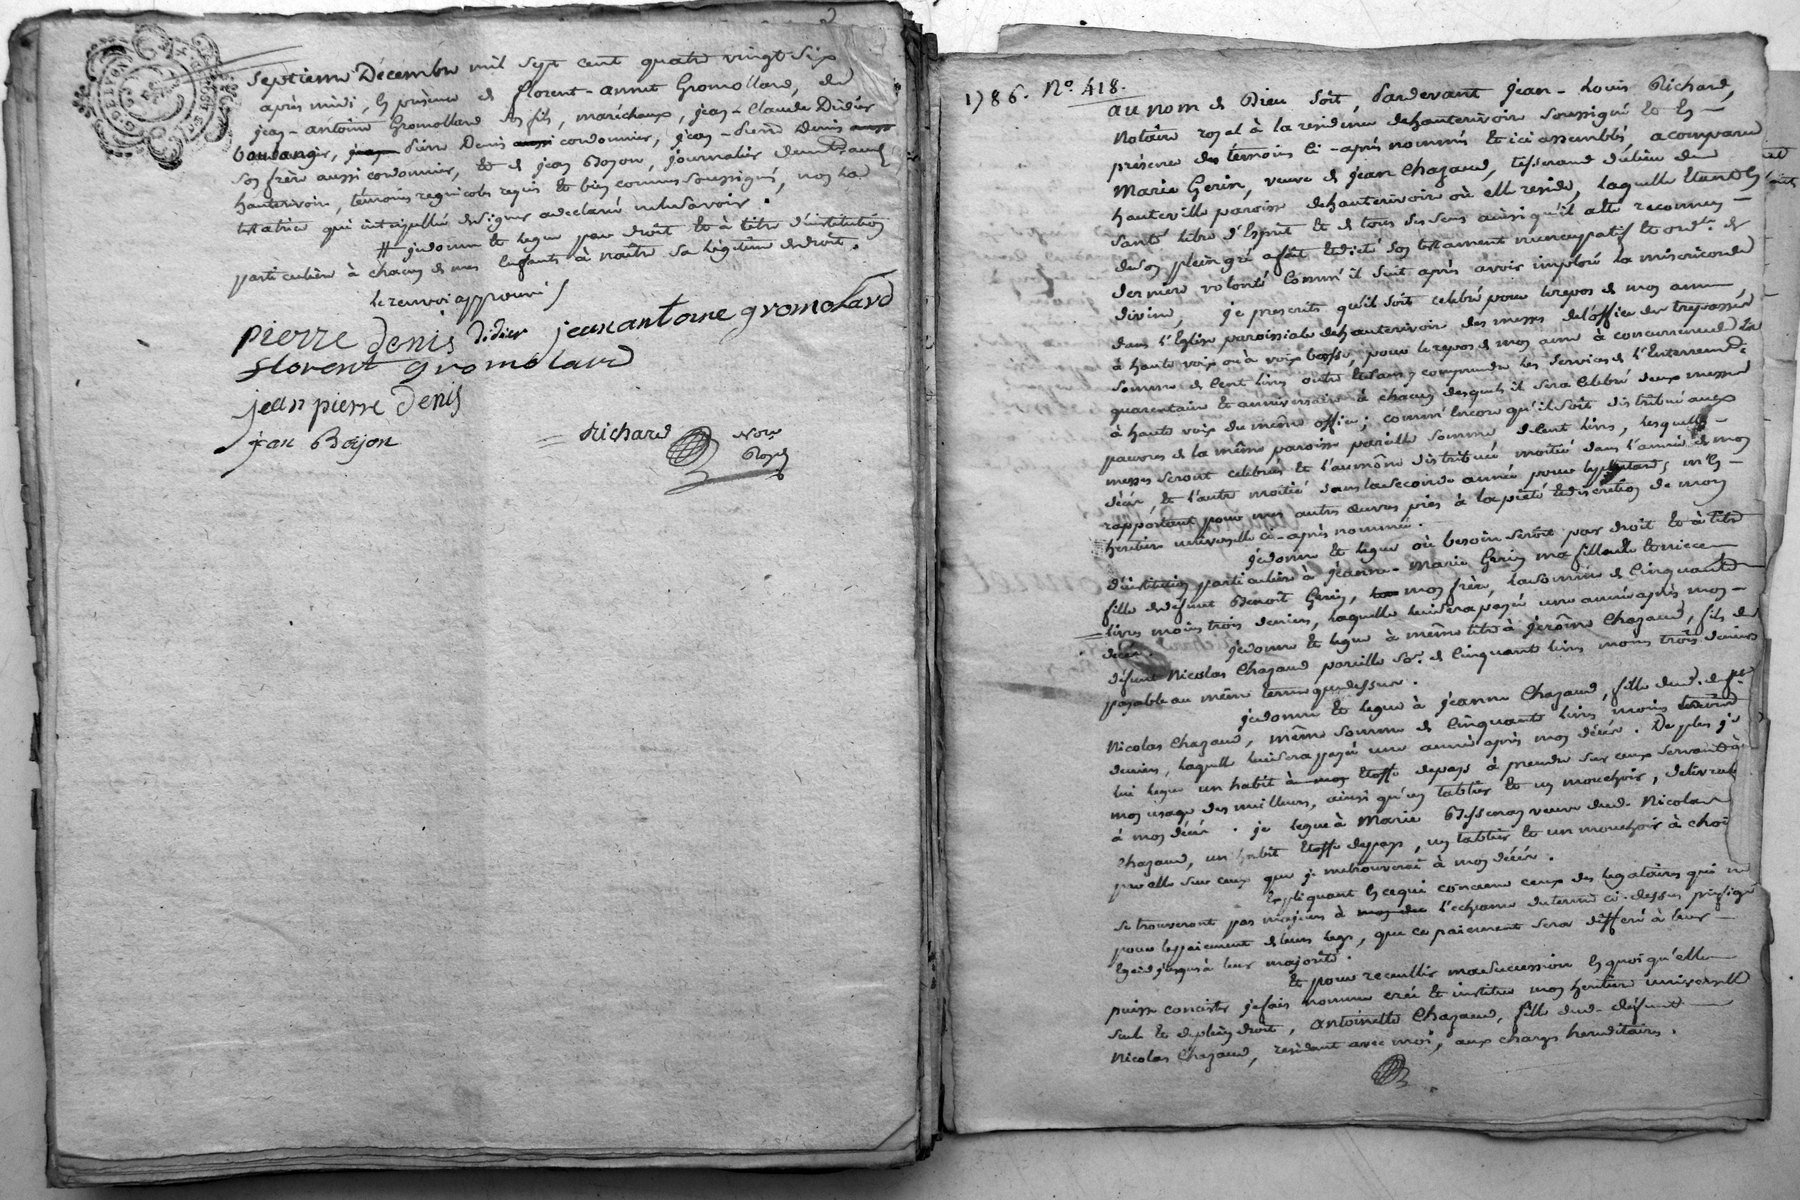 2
septieme Décembre mil sept cent quatre vingt six
après midi, En présence de florent-annet Gromollard, de
jean-antoine Gromollard son fils, maréchaux, jean-Claude Didier
boulanger, Pierre Denis cordonnier, jean-Pierre Denis
son frère aussi cordonnier, et de jean Bojon, journalier
hauterivoir, témoins regnicoles requis et bien connus soussignés, non la
testatrice qui interpellée de signer a declaré ne le savoir.
# je donne et legue par droit et à titre d'institution
particuliere à chacun de mes Enfants à naître sa légitime de droit.
le renvoi approuvé
pierre denis Didier jean antoine gromolard
florent gromolard
jean pierre denis
jean Bojon
Richard Nore
Royal
1786. No. 418.
au nom de Dieu soit, Pardevant Jean-Louis Richard,
Notaire royal à la residence de hauterivoir soussigné et En
présence des temoins ci-après nommés et ici assemblés, a comparue
Marie Gerin, veuve de jean Chazaud, tisserand du lieu de
hauteville paroisse de hauterivoir où elle reside, laquelle Etant En
santé libre d'Esprit et de tous ses sens ainsi qu'il a Eté reconnu
de son plein gré a fait et dicté son testament nuncupatif et ordre. de
derniere volonté Comm'il suit après avoir imploré la misericorde
divine, je prescrits qu'il soit celebré pour le repos de mon ame
dans l'Eglise paroissiale de hauterivoir des messes de l'office des trepassés
à haute voix ou à voix basse, pour le repos de mon ame à concurrence de la
somme de Cent livres outre et sans y comprendre les services de l'Enterrement
quarantaine et anniversaire à chacun desquels il sera Celebré deux messes
à haute voix du même office; comm'Encore qu'il soit distribué aux
pauvres de la même paroisse pareille somme de Cent livres, lesquelles
messes seront celebrées et l'aumône distribuée moitié dans l'année de mon
décès et l'autre moitié dans la seconde année m'En
rapportant pour mes autres œuvres pies à la piété et discretion de mon
heritiere universelle ci-après nommée.
je donne et legue où besoin seroit par droit et à titre
d'institution particuliere à jeanne-Marie Gerin ma filleule et niece
fille de defunt Benoit Gerin, mon frère, la somme de Cinquante
livres moins trois deniers, laquelle lui sera payée une année après mon
décès. je donne et legue à même titre à jerôme Chazaud, fils de
défunt Nicolas Chazaud pareille se. de Cinquante livres moins trois deniers
payable au même terme que dessus.
je donne et legue à jeanne Chazaud, fille dud. defunt
Nicolas Chazaud, même somme de Cinquante livres moins trois
deniers, laquelle lui sera payée une année après mon décès. De plus je
lui legue un habit Etoffe de pays à prendre sur ceux servant à
mon usage des meilleurs, ainsi qu'un tablier et un mouchoir, delivrable
à mon décès. je legue à Marie veuve dud. Nicolas
Chazaud, un habit Etoffe de pays, un tablier et un mouchoir à choisir
par elle sur ceux que je me trouverai à mon décès.
Expliquant En ce qui concerne ceux des legataires qui ne
se trouveront pas majeurs à l'echeance du terme ci-dessus prefigé
pour le paiement de leurs legs, que ce paiement sera differé à leur
Egard jusqu'à leur majorité.
Et pour recueillir ma succession En quoi qu'elle
puisse consister je fais nomme crée et institue mon heritiere universelle
seule et de plein droit, antoinette Chazaud, fille dud. défunt
Nicolas Chazaud, residant avec moi, aux charges hereditaires.